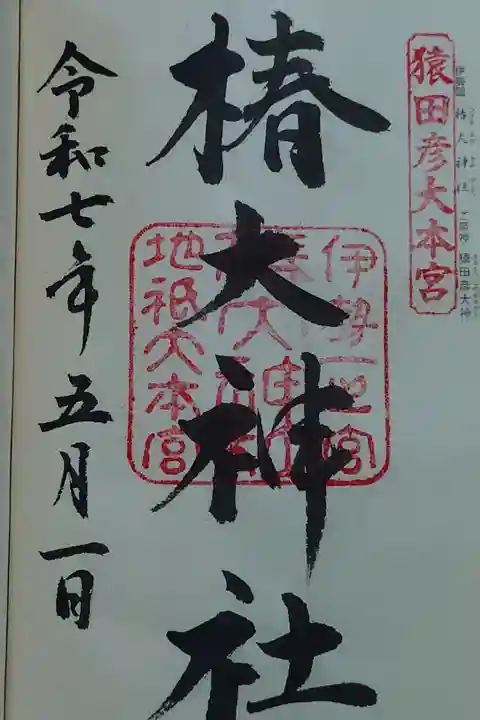 伊勢国 椿大神社 主祭神 猿田彦大神
猿田彦大本宮
椿大神社
伊勢一之宮
地祇大本宮
令和七年五月一日